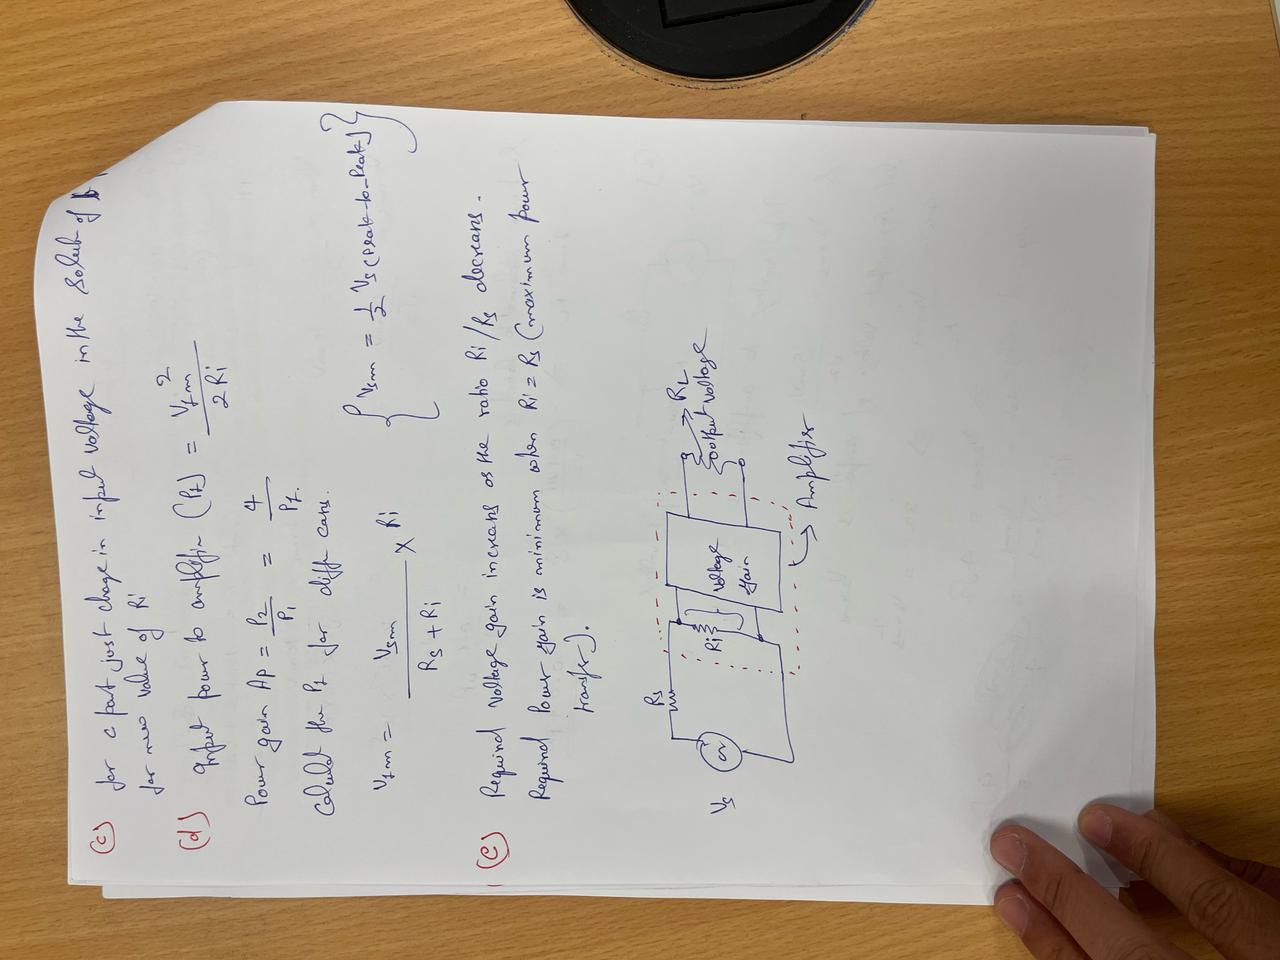 (c) for c part just change in input voltage in the Solut of b
for new value of Ri
(d) Input power to amplifier (P1) = V1m² / 2Ri
Power gain Ap = P2/Pi = 4/P1.
Calculate the P1 for diff cases.
V1m = Vsm / (Rs + Ri) × Ri { Vsm = 1/2 Vs (Peak-to-Peak) }
(e) Required voltage gain increases as the ratio Ri/Rs decreases.
Required Power gain is minimum when Ri = Rs (maximum power
transfer).
Rs
Vs
Ri
Voltage
gain
RL
output voltage
Amplifier